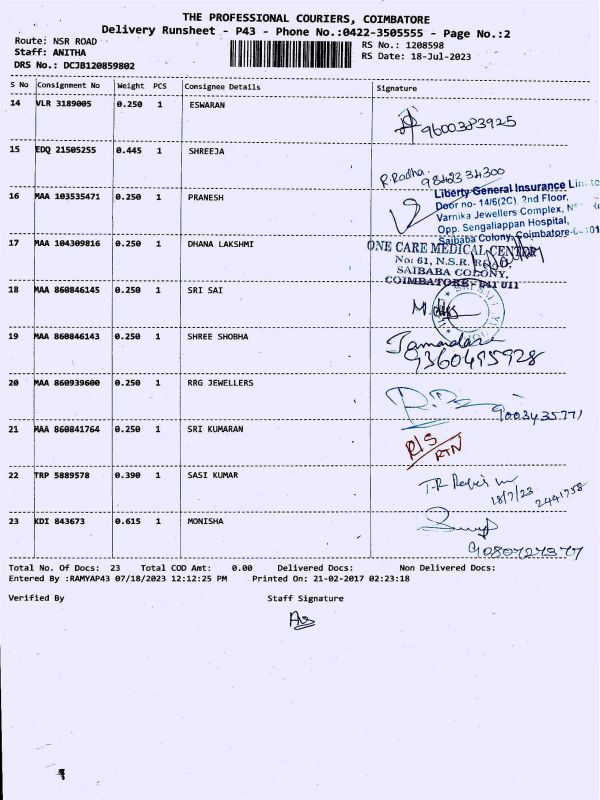 THE PROFESSIONAL COURIERS, COIMBATORE
Delivery Runsheet - P43 - Phone No.:0422-3505555 - Page No.:2
Route: NSR ROAD
RS No.: 1208598
Staff: ANITHA
RS Date: 18-Jul-2023
DRS No.: DCJB120859802
S No Consignment No Weight PCS Consignee Details Signature
14 VLR 3189005 0.250 1 ESWARAN
9600383925
15 EDQ 21505255 0.445 1 SHREEJA
R.Radha. 9842334300
16 MAA 103535471 0.250 1 PRANESH
Liberty General Insurance
Door no- 14/6(2C), 2nd Floor,
Varnika Jewellers Complex,
Opp. Sengaliappan Hospital,
Saibaba Colony, Coimbatore-
17 MAA 104309816 0.250 1 DHANA LAKSHMI
ONE CARE MEDICAL CENTRE
No: 61, N.S.R. ROAD,
SAIBABA COLONY,
COIMBATORE - 641 011
18 MAA 860846145 0.250 1 SRI SAI
19 MAA 860846143 0.250 1 SHREE SHOBHA
9360495928
20 MAA 860939600 0.250 1 RRG JEWELLERS
9003435771
21 MAA 860841764 0.250 1 SRI KUMARAN
R/S
RTN
22 TRP 5889578 0.390 1 SASI KUMAR
18/7/23 2441758
23 KDI 843673 0.615 1 MONISHA
9080727377
Total No. Of Docs: 23 Total COD Amt: 0.00 Delivered Docs: Non Delivered Docs:
Entered By :RAMYAP43 07/18/2023 12:12:25 PM Printed On: 21-02-2017 02:23:18
Verified By Staff Signature